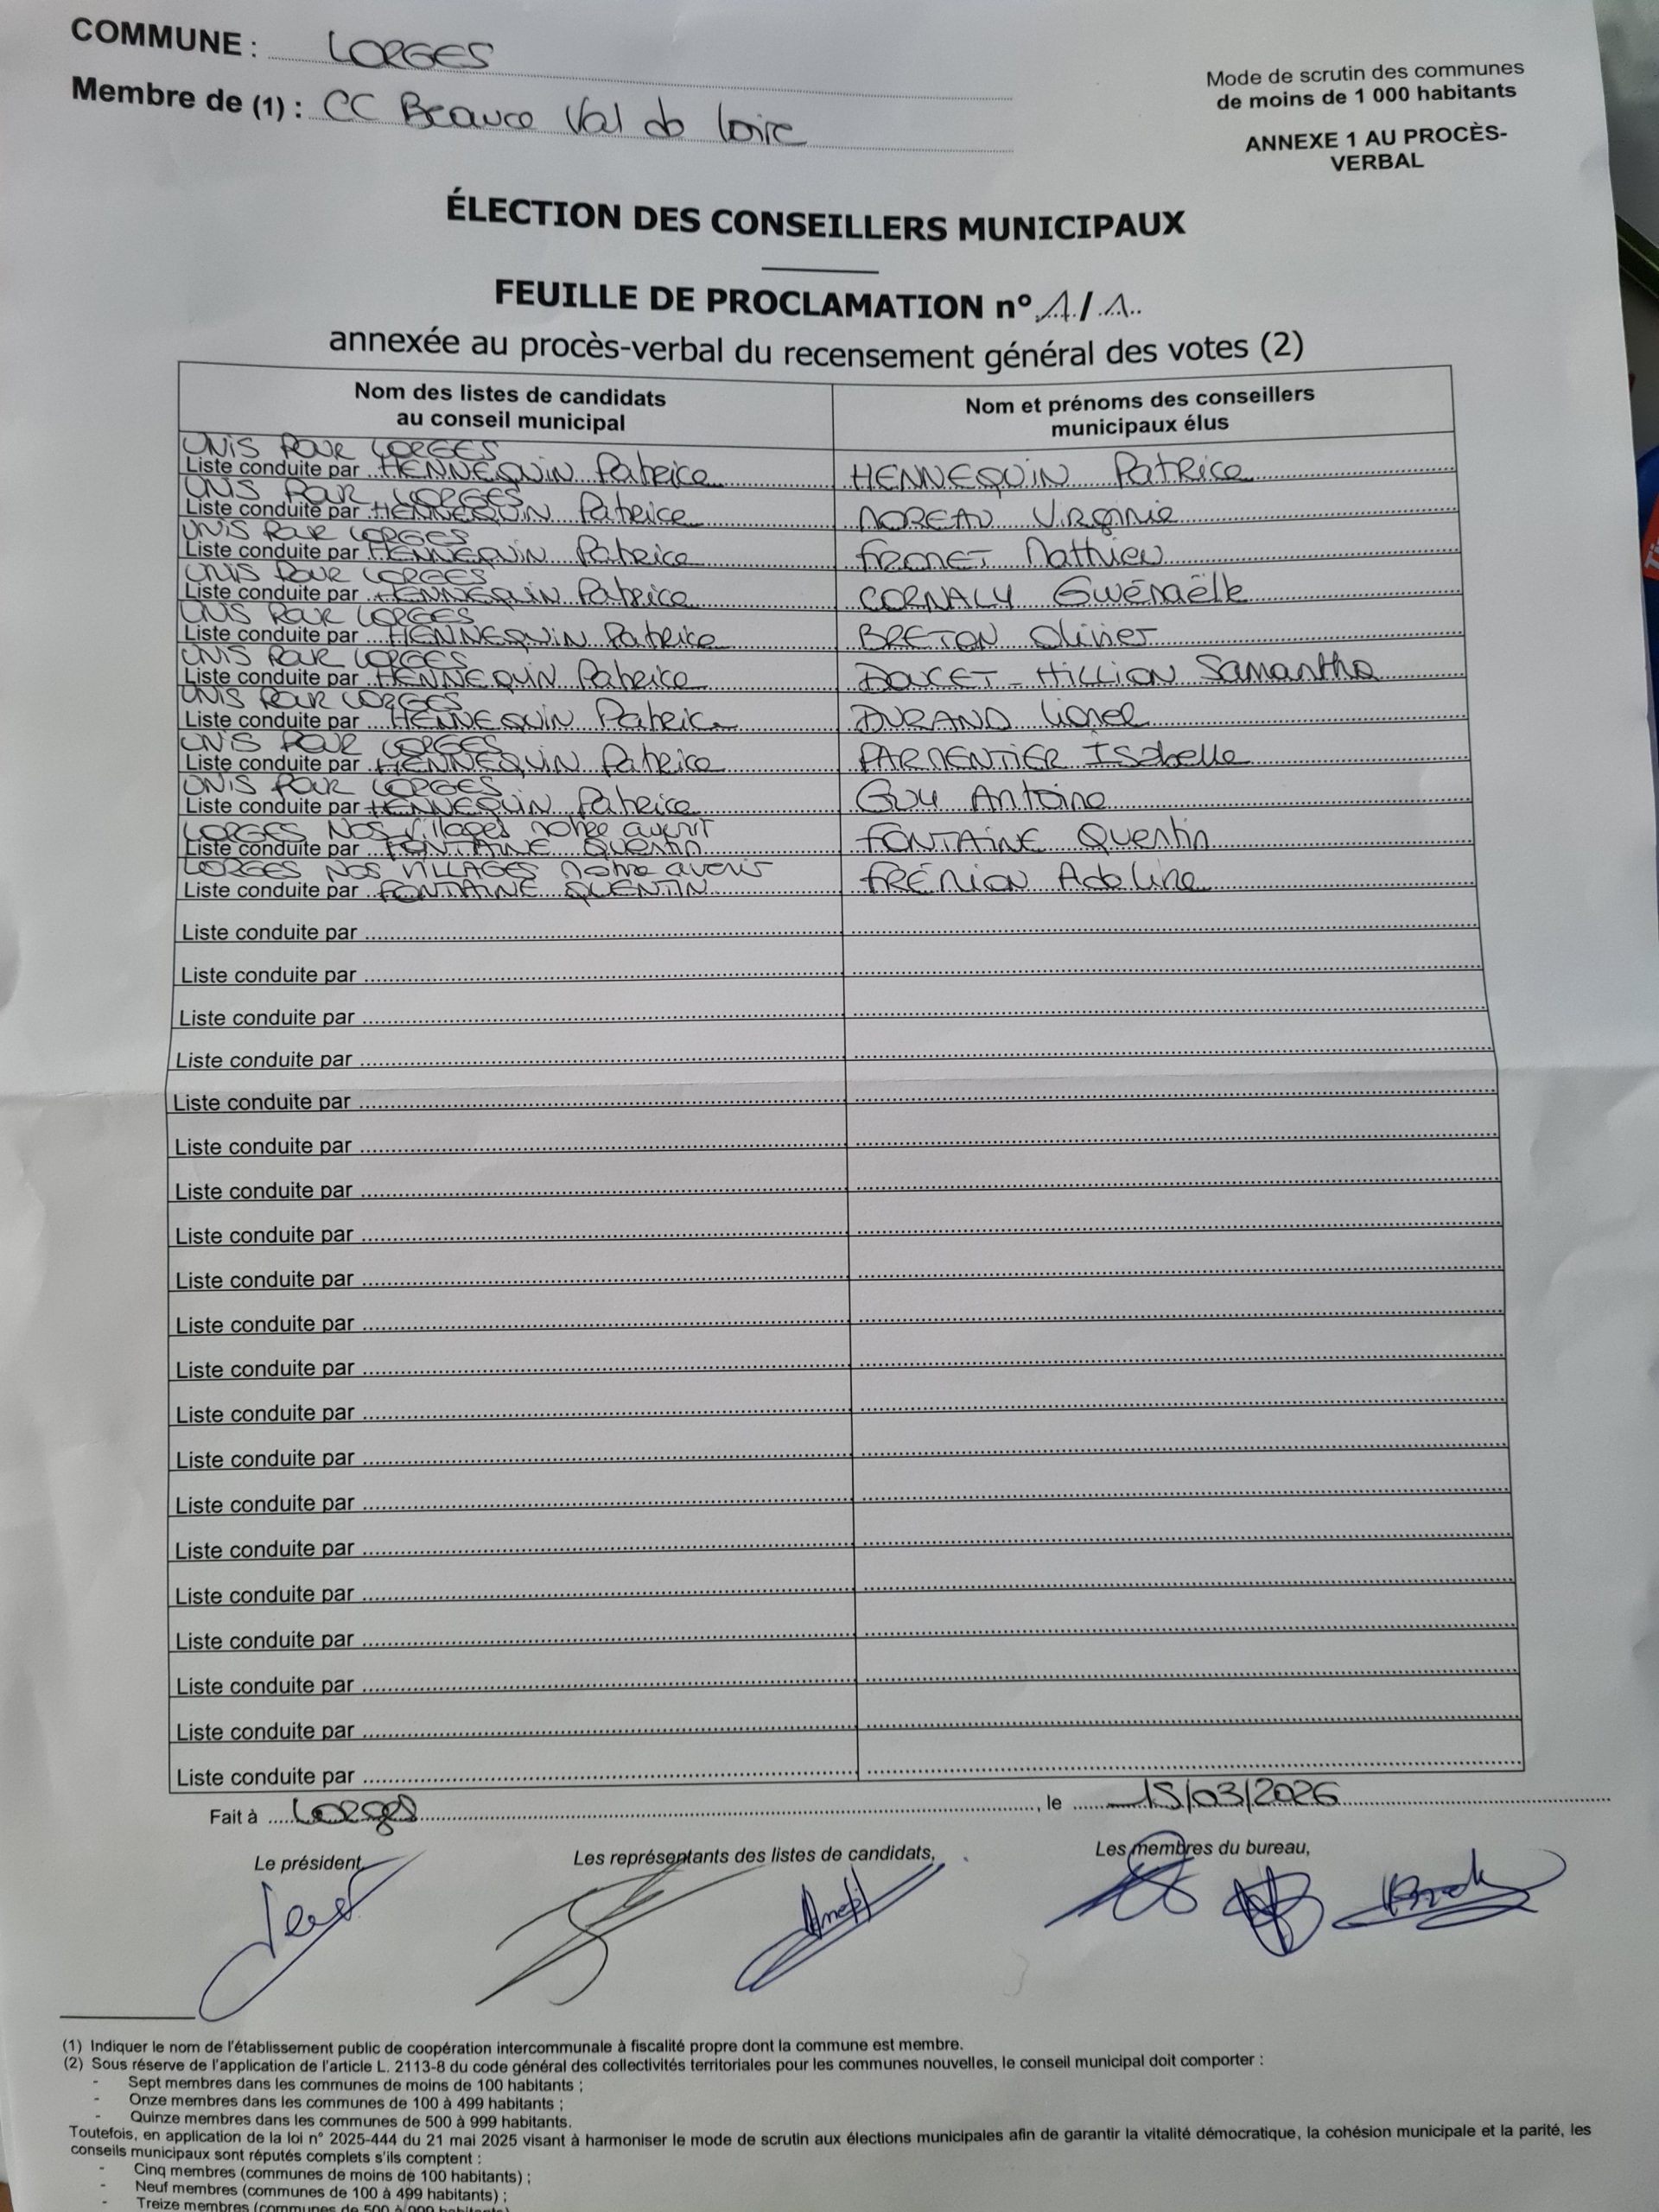 COMMUNE : LORGES
Membre de (1) : CC Beauce Val de Loire
Mode de scrutin des communes
de moins de 1 000 habitants
ANNEXE 1 AU PROCÈS-
VERBAL
ÉLECTION DES CONSEILLERS MUNICIPAUX
FEUILLE DE PROCLAMATION n° 1/1
annexée au procès-verbal du recensement général des votes (2)
Nom des listes de candidats
au conseil municipal
Nom et prénoms des conseillers
municipaux élus
UNIS POUR LORGES
Liste conduite par HENNEQUIN Patrice HENNEQUIN Patrice
UNIS POUR LORGES
Liste conduite par HENNEQUIN Patrice MOREAU Virginie
UNIS POUR LORGES
Liste conduite par HENNEQUIN Patrice FROMET Mathieu
UNIS POUR LORGES
Liste conduite par HENNEQUIN Patrice CORNALY Gwénaëlle
UNIS POUR LORGES
Liste conduite par HENNEQUIN Patrice BRETON Olivier
UNIS POUR LORGES
Liste conduite par HENNEQUIN Patrice DOUCET-HILLION Samantha
UNIS POUR LORGES
Liste conduite par HENNEQUIN Patrice DURAND Lionel
UNIS POUR LORGES
Liste conduite par HENNEQUIN Patrice PARMENTIER Isabelle
UNIS POUR LORGES
Liste conduite par HENNEQUIN Patrice GUY Antoine
LORGES NOS villages notre avenir
Liste conduite par FONTAINE Quentin FONTAINE Quentin
LORGES NOS VILLAGES notre avenir
Liste conduite par FONTAINE QUENTIN FRÉMION Adeline
Liste conduite par
Liste conduite par
Liste conduite par
Liste conduite par
Liste conduite par
Liste conduite par
Liste conduite par
Liste conduite par
Liste conduite par
Liste conduite par
Liste conduite par
Liste conduite par
Liste conduite par
Liste conduite par
Liste conduite par
Liste conduite par
Liste conduite par
Liste conduite par
Liste conduite par
Liste conduite par
Fait à Lorges, le 15/03/2026
Le président,
Les représentants des listes de candidats,
Les membres du bureau,
(1) Indiquer le nom de l'établissement public de coopération intercommunale à fiscalité propre dont la commune est membre.
(2) Sous réserve de l'application de l'article L. 2113-8 du code général des collectivités territoriales pour les communes nouvelles, le conseil municipal doit comporter :
- Sept membres dans les communes de moins de 100 habitants ;
- Onze membres dans les communes de 100 à 499 habitants ;
- Quinze membres dans les communes de 500 à 999 habitants.
Toutefois, en application de la loi n° 2025-444 du 21 mai 2025 visant à harmoniser le mode de scrutin aux élections municipales afin de garantir la vitalité démocratique, la cohésion municipale et la parité, les
conseils municipaux sont réputés complets s'ils comptent :
- Cinq membres (communes de moins de 100 habitants) ;
- Neuf membres (communes de 100 à 499 habitants) ;
- Treize membres (communes de 500 à 999 habitants)